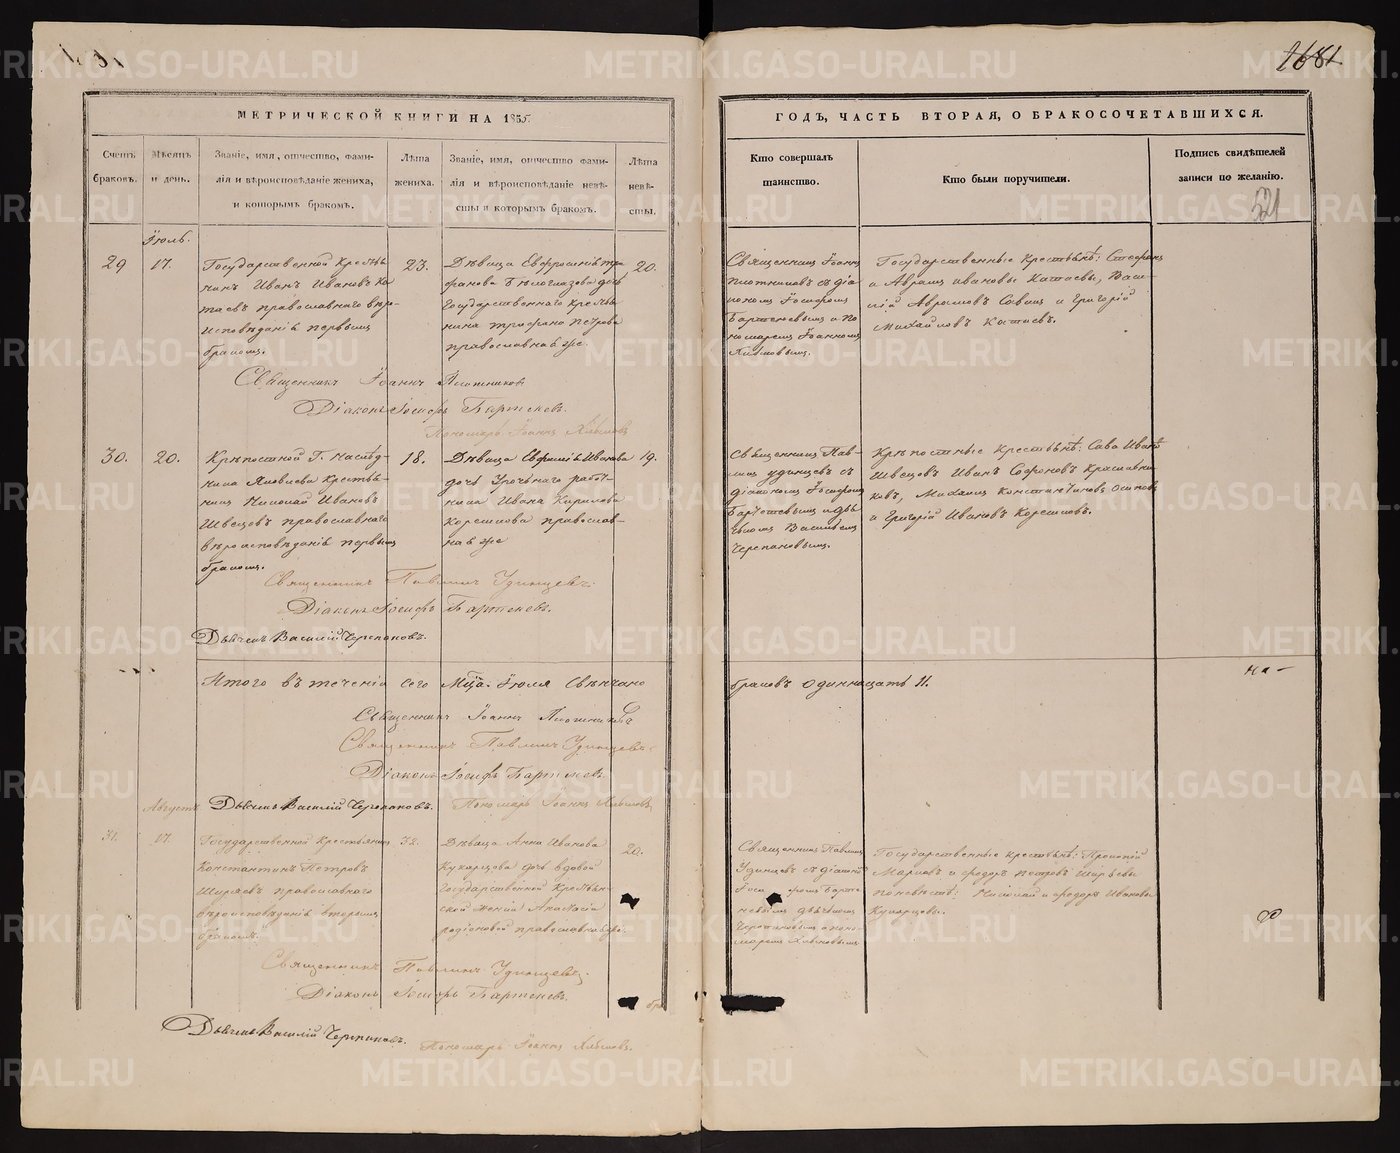 1681
521
МЕТРИЧЕСКОЙ КНИГИ НА 1855
ГОДЪ, ЧАСТЬ ВТОРАЯ, О БРАКОСОЧЕТАВШИХСЯ.
Счетъ
браковъ.
Мѣсяцъ
и день.
Званіе, имя, отчество, фами-
лія и вѣроисповѣданіе жениха,
и которымъ бракомъ.
Лѣта
жениха.
Званіе, имя, отчество фами-
лія и вѣроисповѣданіе невѣ-
сты и которымъ бракомъ.
Лѣта
невѣ-
сты.
Кто совершалъ
таинство.
Кто были поручители.
Подпись свидѣтелей
записи по желанію.
Іюль.
29
17.
Государственной крестья
нинъ Иванъ Ивановъ Ка
таевъ православнаго вѣро-
исповѣданія первымъ
бракомъ.
23.
Дѣвица Евфросинія Три
фанова Бѣлоглазова дочь
Государственнаго крестья
нина Трифано Петрова
православнаго же.
20.
Священникъ Іоаннъ
Плотниковъ съ діа
кономъ Іосифомъ
Бартеневымъ и по
номаремъ Іоанномъ
Хлыновымъ.
Государственные крестьянѣ: Стефанъ
и Аврамъ Ивановы Катаевы, Васи-
лій Аврамовъ Савинъ и Григорій
Михайловъ Катаевъ.
Священникъ Іоаннъ Плотниковъ
Діаконъ Іосифъ Бартеневъ.
Пономарь Іоаннъ Хлыновъ
30.
20.
Крѣпостной Г. Насибу-
лина Яковлева крестья-
нинъ Николай Ивановъ
Швецовъ православнаго
вѣроисповѣданія первымъ
бракомъ.
18.
Дѣвица Евфимія Иванова
дочь Урочнаго работ-
ника Ивана Кирилова
Корешкова православ-
ная же
19.
Священникъ Пав-
линъ Удинцевъ съ
діакономъ Іосифомъ
Бартеневымъ и дья-
чкомъ Васильемъ
Черепановымъ.
Крѣпостные крестьянѣ: Сава Ивановъ
Швецовъ Иванъ Софоновъ Красильни-
ковъ, Михаилъ Константиновъ Осиновъ
и Григорій Ивановъ Корешковъ.
Священникъ Павлинъ Удинцевъ.
Діаконъ Іосифъ Бартеневъ.
Дьячекъ Василій Черепановъ.
Итого въ теченіи сего Мца Іюля вѣнчано
браковъ одиннадцать 11.
Священникъ Іоаннъ Плотниковъ
Священникъ Павлинъ Удинцевъ.
Діаконъ Іосифъ Бартеневъ.
Дьячекъ Василій Черепановъ. Пономарь Іоаннъ Хлыновъ.
Августъ
31.
17.
Государственной крестьянинъ
Константинъ Петровъ
Ширяевъ православнаго
вѣроисповѣданія вторымъ
бракомъ.
32.
Дѣвица Анна Иванова
Кукарцева дочь вдовой
Государственной крестьян-
ской женки Анастасіи
Родіоновой православная же.
20.
Священникъ Павлинъ
Удинцевъ съ діакономъ
Іосифомъ Барте-
невымъ дьячкомъ
Черепановымъ и поно-
маремъ Хлыновымъ
Государственные крестьянѣ: Прокопій
Марковъ и Федоръ Петровъ Ширяевы
по невѣстѣ: Николай и Федоръ Ивановы
Кукарцевы.
Священникъ Павлинъ Удинцевъ.
Діаконъ Іосифъ Бартеневъ.
Дьячекъ Василій Черепановъ.
Пономарь Іоаннъ Хлыновъ.
METRIKI.GASO-URAL.RU